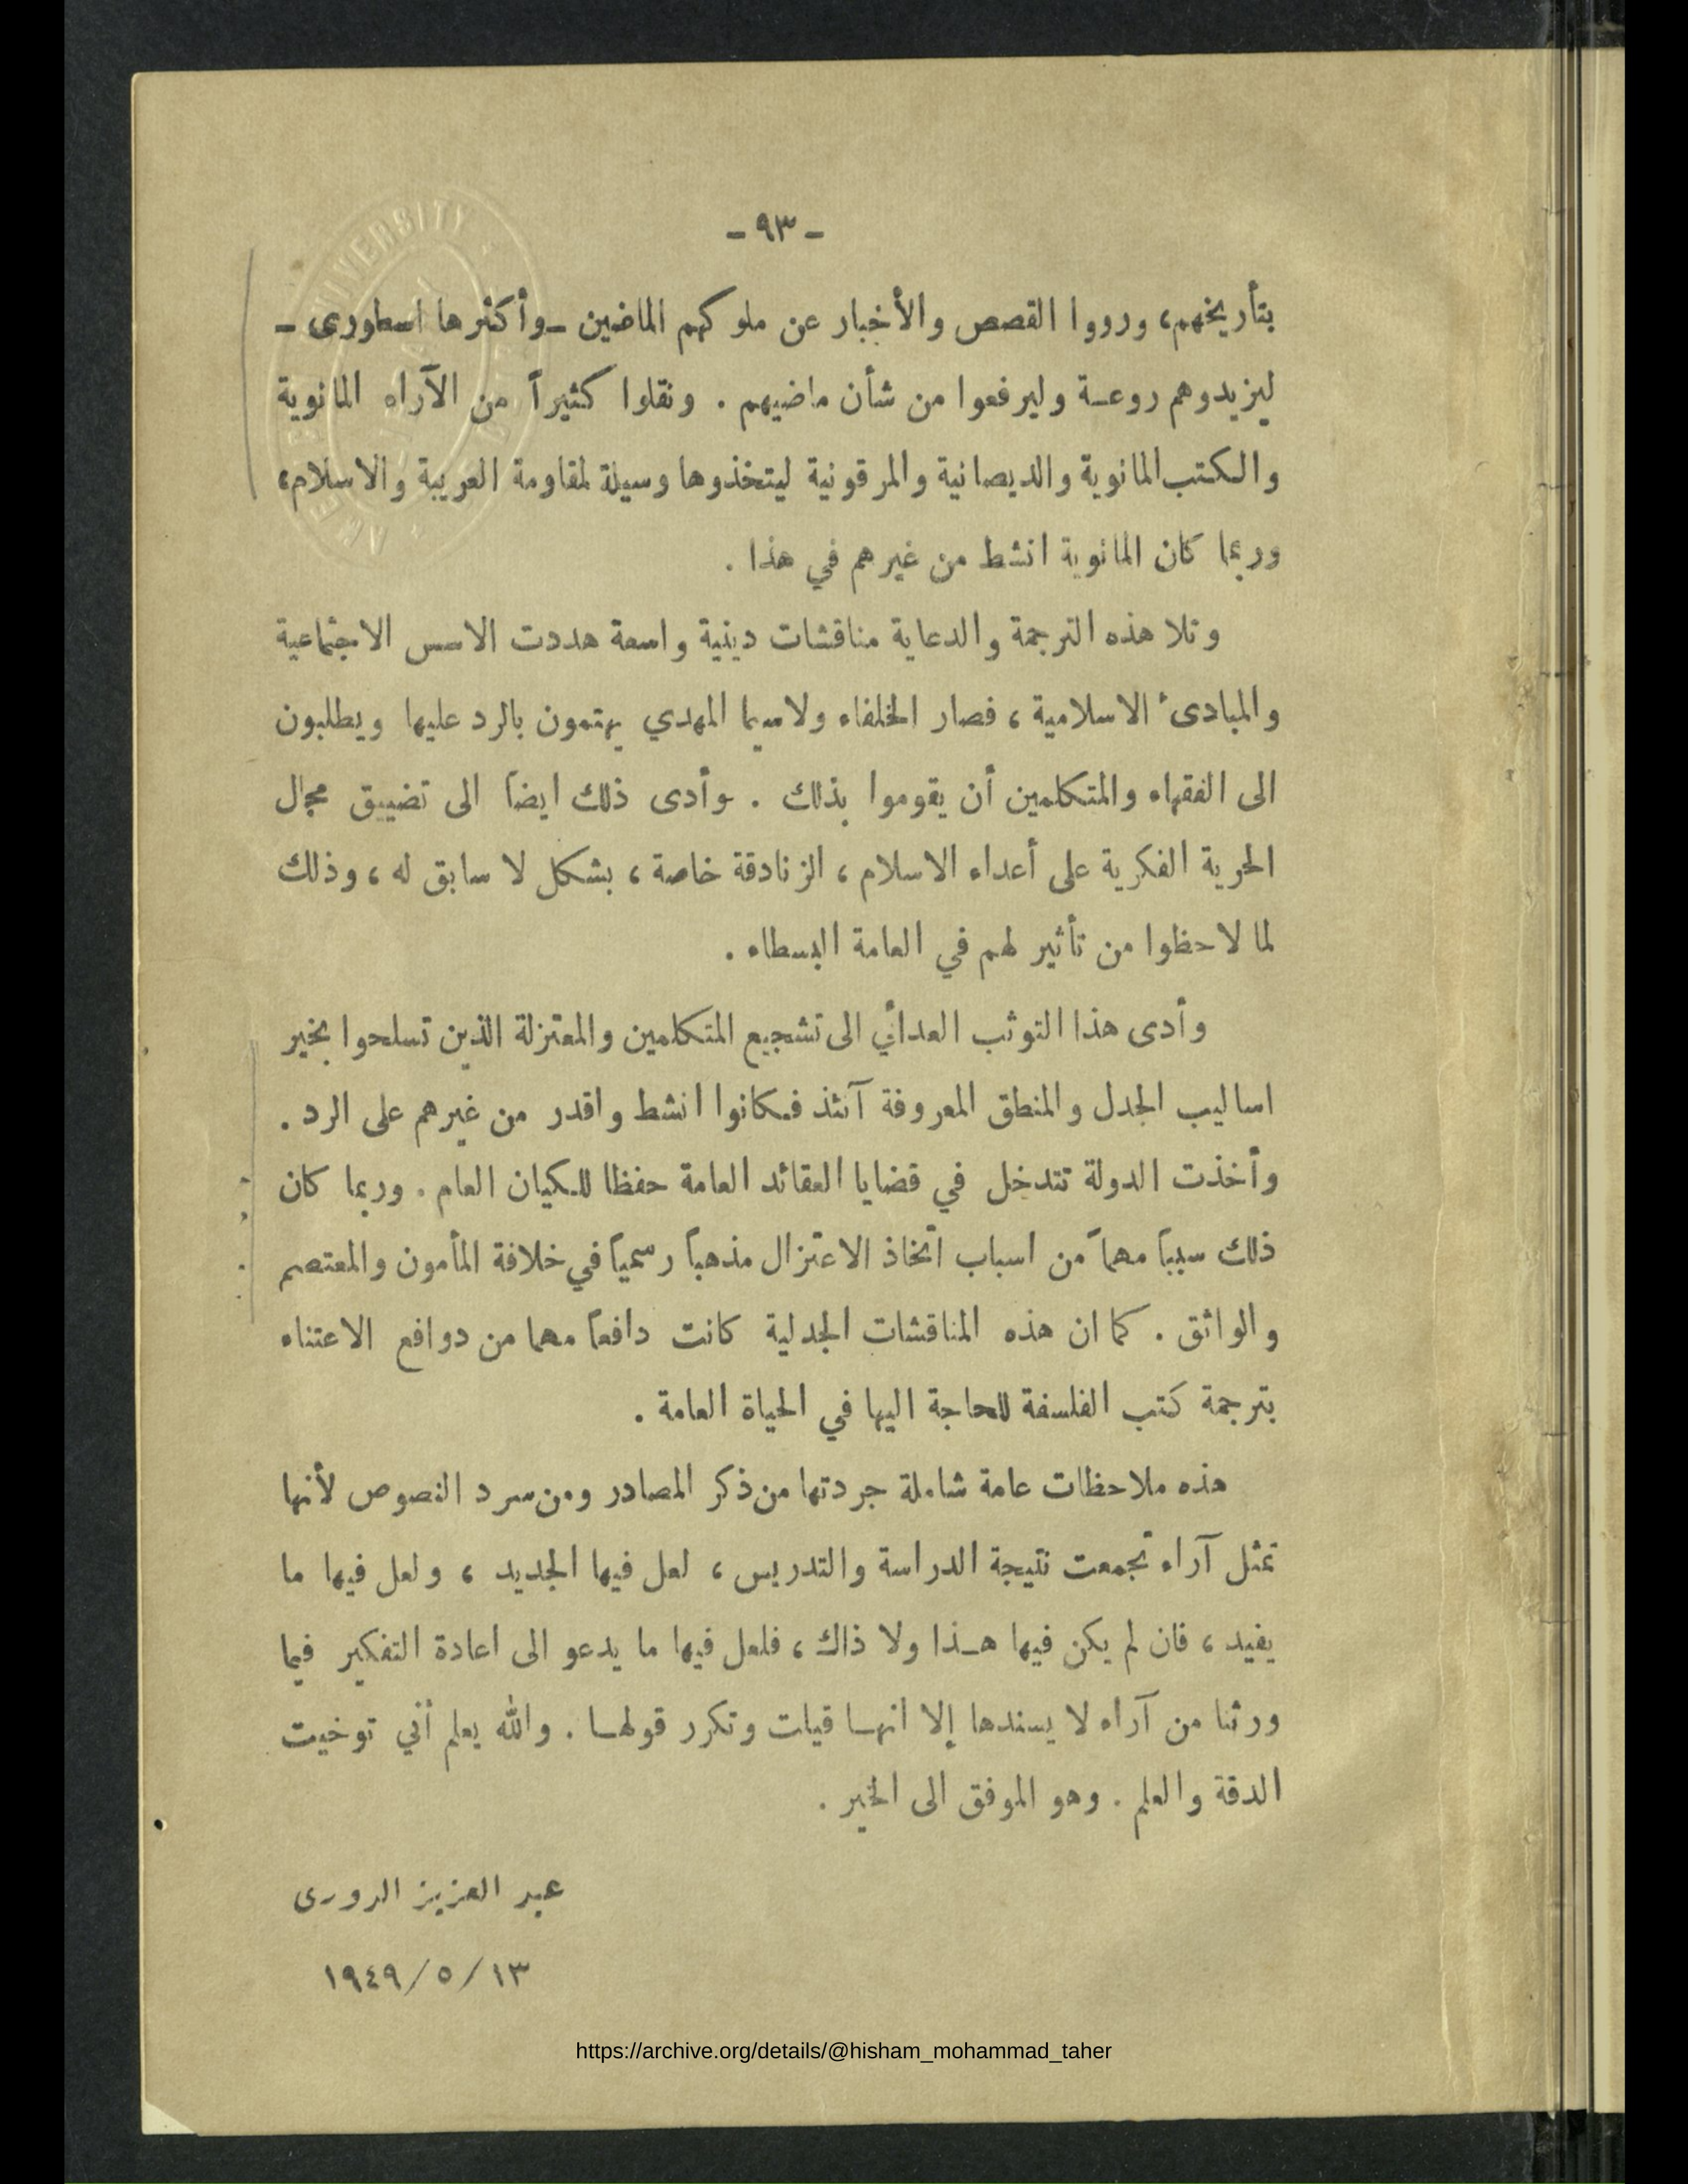 - ٩٣ -
بتأريخهم، ورووا القصص والأخبار عن ملوكهم الماضين - وأكثرها اسطورى -
ليزيدوهم روعة وليرفعوا من شأن ماضيهم . ونقلوا كثيراً من الآراء المانوية
والكتب المانوية والديصانية والمرقونية ليتخذوها وسيلة لمقاومة العربية والاسلام،
وربما كان المانوية انشط من غيرهم في هذا .
وتلا هذه الترجمة والدعاية مناقشات دينية واسعة هددت الاسس الاجتماعية
والمبادىء الاسلامية ، فصار الخلفاء ولاسيما المهدي يهتمون بالرد عليها ويطلبون
الى الفقهاء والمتكلمين أن يقوموا بذلك . وأدى ذلك ايضاً الى تضييق مجال
الحرية الفكرية على أعداء الاسلام ، الزنادقة خاصة ، بشكل لا سابق له ، وذلك
لما لاحظوا من تأثير لهم في العامة البسطاء .
وأدى هذا التوثب العدائي الى تشجيع المتكلمين والمعتزلة الذين تسلحوا بخير
اساليب الجدل والمنطق المعروفة آنئذ فكانوا انشط واقدر من غيرهم على الرد .
وأخذت الدولة تتدخل في قضايا العقائد العامة حفظا للكيان العام . وربما كان
ذلك سبباً مهماً من اسباب اتخاذ الاعتزال مذهباً رسمياً في خلافة المأمون والمعتصم
والواثق . كما ان هذه المناقشات الجدلية كانت دافعاً مهما من دوافع الاعتناء
بترجمة كتب الفلسفة للحاجة اليها في الحياة العامة .
هذه ملاحظات عامة شاملة جردتها من ذكر المصادر ومن سرد النصوص لأنها
تمثل آراء تجمعت نتيجة الدراسة والتدريس ، لعل فيها الجديد ، ولعل فيها ما
يفيد ، فان لم يكن فيها هذا ولا ذاك ، فلعل فيها ما يدعو الى اعادة التفكير فيما
ورثنا من آراء لا يسندها إلا انها قيلت وتكرر قولها . والله يعلم أني توخيت
الدقة والعلم . وهو الموفق الى الخير .
عبد العزيز الدورى
١٩٤٩/٥/١٣
https://archive.org/details/@hisham_mohammad_taher